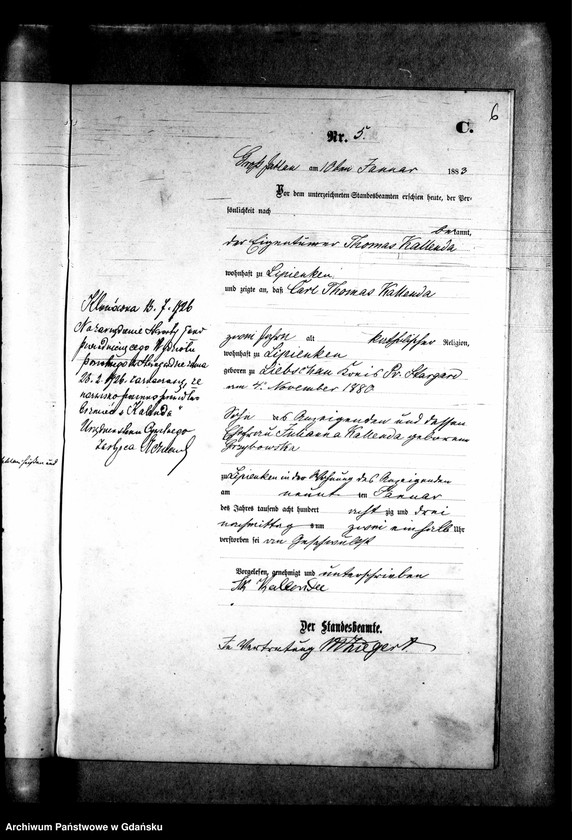 6
C.
Nr. 5.
Groß Jablau am 10ten Januar 1883
Vor dem unterzeichneten Standesbeamten erschien heute, der Per-
sönlichkeit nach
bekannt,
der Eigentümer Thomas Kallenda
wohnhaft zu Lipienken
und zeigte an, daß Carl Thomas Kallenda
zwei Jahre alt katholischer Religion,
wohnhaft zu Lipienken
geboren zu Liebschau Kreis Pr. Stargard
am 4. November 1880
Sohn des Anzeigenden und dessen
Ehefrau Julianna Kallenda geborenen
Grzybowska
zu Lipienken in der Wohnung des Anzeigenden
am neunten Januar
des Jahres tausend acht hundert achtzig und drei
nachmittag um zwei einhalb Uhr
verstorben sei an Geschwulst
Vorgelesen, genehmigt und unterschrieben
Kallenda
Der Standesbeamte.
In Vertretung
13. 7. 1926
Na zarządzenie
25. 2. 1926 zaznaczam, że
"Kalenda"
Urzędnik Stanu Cywilnego
Archiwum Państwowe w Gdańsku